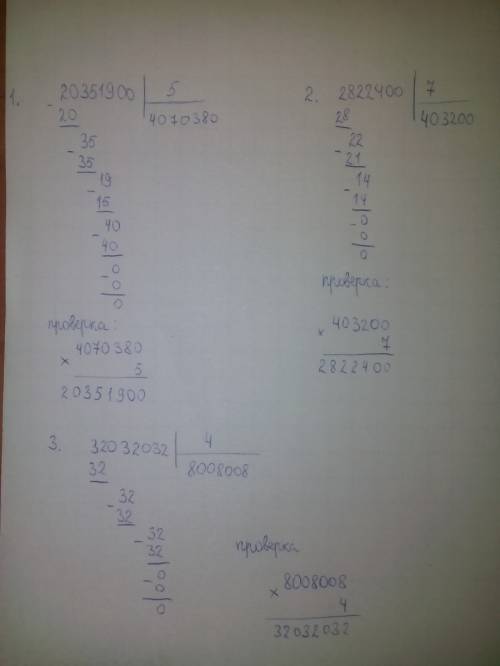 1. 20351900 | 5
- 20 4070380
35
- 35
19
- 15
40
- 40
0
- 0
0
проверка:
4070380
× 5
20351900
2. 2822400 | 7
28 403200
22
- 21
14
- 14
0
- 0
0
проверка:
× 403200
7
2822400
3. 32032032 | 4
32 8008008
32
- 32
32
- 32
0
- 0
0
проверка
8008008
× 4
32032032